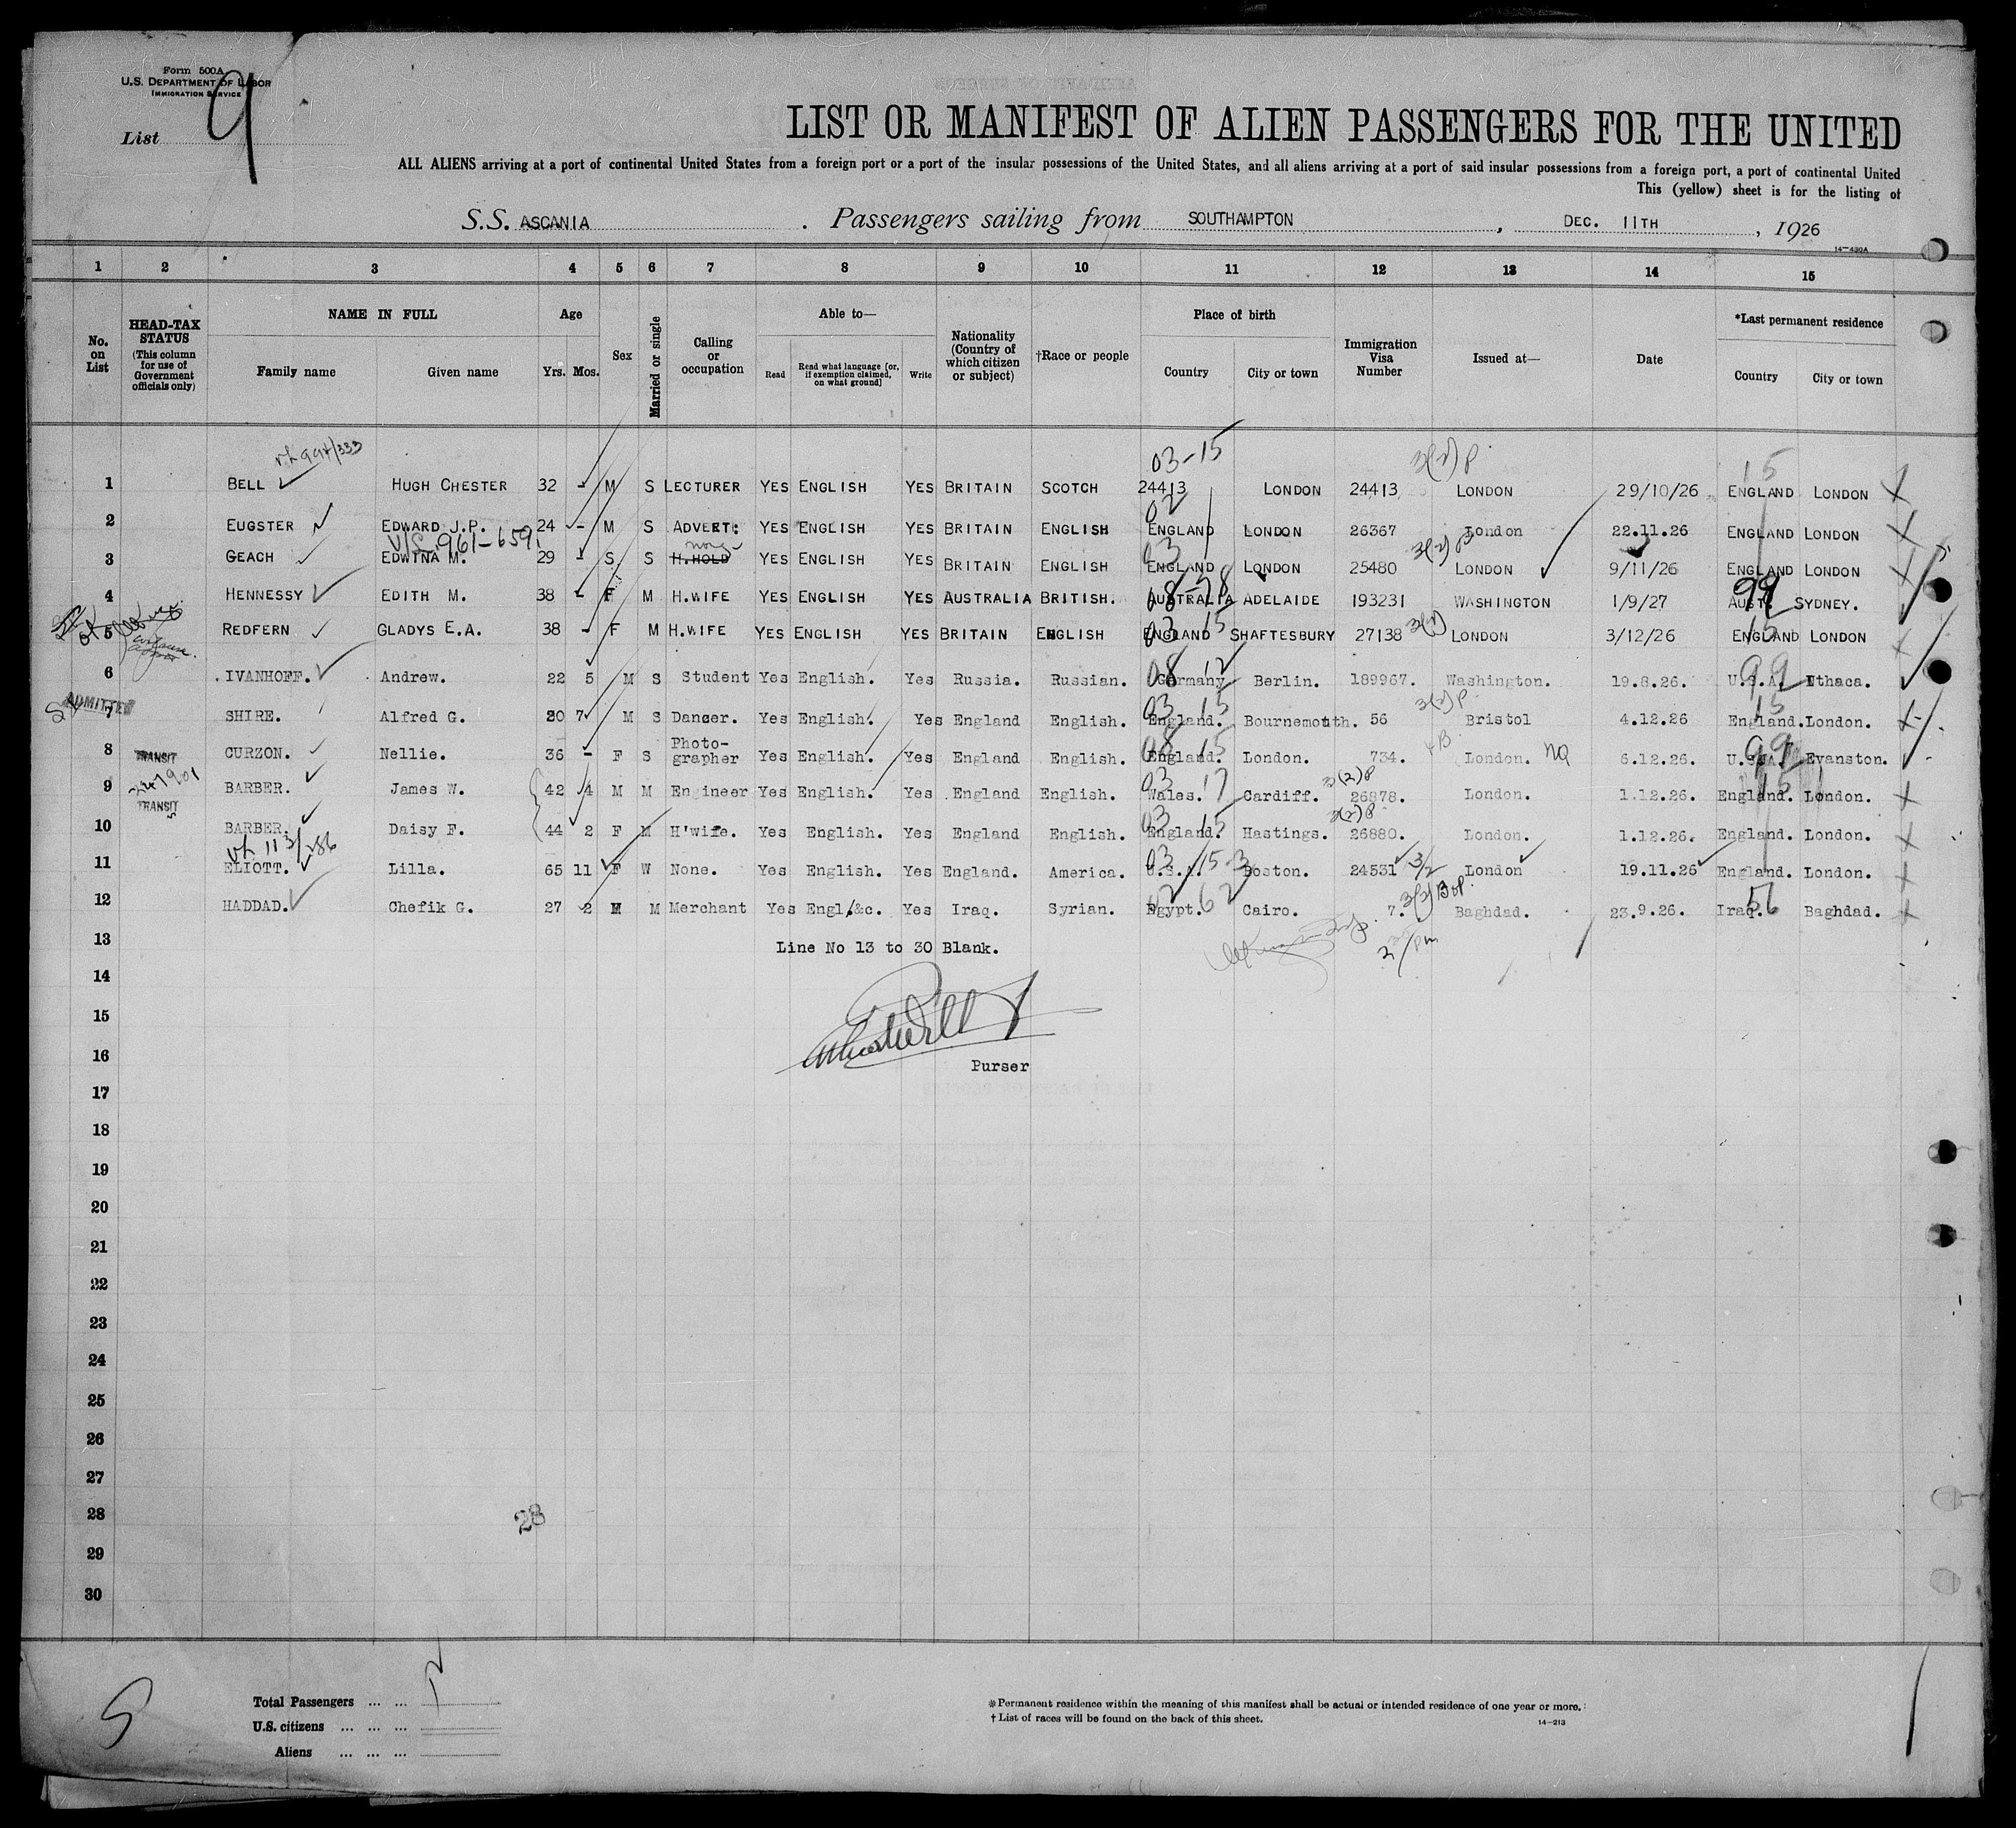 Form 500A
U.S. DEPARTMENT OF LABOR
IMMIGRATION SERVICE
List 9
LIST OR MANIFEST OF ALIEN PASSENGERS FOR THE UNITED
ALL ALIENS arriving at a port of continental United States from a foreign port or a port of the insular possessions of the United States, and all aliens arriving at a port of said insular possessions from a foreign port, a port of continental United
This (yellow) sheet is for the listing of
S.S. ASCANIA . Passengers sailing from SOUTHAMPTON , DEC. 11TH , 1926
14—430A
1 2 3 4 5 6 7 8 9 10 11 12 13 14 15
No. on List
HEAD-TAX STATUS (This column for use of Government officials only)
NAME IN FULL
Family name Given name
Age
Yrs. Mos.
Sex
Married or single
Calling or occupation
Able to—
Read Read what language [or, if exemption claimed, on what ground] Write
Nationality (Country of which citizen or subject)
†Race or people
Place of birth
Country City or town
Immigration Visa Number
Issued at—
Date
*Last permanent residence
Country City or town
03-15 3(2)P 15
1 BELL HUGH CHESTER 32 - M S LECTURER YES ENGLISH YES BRITAIN SCOTCH 24413 LONDON 24413 LONDON 29/10/26 ENGLAND LONDON
02
2 EUGSTER EDWARD J.P. 24 - M S ADVERT: YES ENGLISH YES BRITAIN ENGLISH ENGLAND LONDON 26367 London 22.11.26 ENGLAND LONDON
V/L 961-659 03
3 GEACH EDWINA M. 29 - S S H.HOLD YES ENGLISH YES BRITAIN ENGLISH ENGLAND LONDON 25480 LONDON 9/11/26 ENGLAND LONDON
08-28 99
4 HENNESSY EDITH M. 38 - F M H.WIFE YES ENGLISH YES AUSTRALIA BRITISH. AUSTRALIA ADELAIDE 193231 WASHINGTON 1/9/27 AUST. SYDNEY.
03 15 15
5 REDFERN GLADYS E.A. 38 - F M H.WIFE YES ENGLISH YES BRITAIN ENGLISH ENGLAND SHAFTESBURY 27138 LONDON 3/12/26 ENGLAND LONDON
08 12 99
6 .IVANHOFF. Andrew. 22 5 M S Student Yes English. Yes Russia. Russian. Germany Berlin. 189967. Washington. 19.8.26. U.S.A. Ithaca.
ADMITTED 03 15 3(2)P. 15
7 SHIRE. Alfred G. 20 7 M S Dancer. Yes English. Yes England English. England. Bournemouth. 56 Bristol 4.12.26 England. London.
08 15 99
8 TRANSIT CURZON. Nellie. 36 - F S Photo-grapher Yes English. Yes England English. England. London. 734. London. 6.12.26. U.S.A. Evanston.
03 17 3(2)P 15
9 BARBER. James W. 42 4 M M Engineer Yes English. Yes England English. Wales. Cardiff. 26878. London. 1.12.26. England. London.
TRANSIT 03 15 3(2)P
10 BARBER. Daisy F. 44 2 F M H'wife. Yes English. Yes England English. England. Hastings. 26880. London. 1.12.26. England. London.
03 15
11 ELIOTT. Lilla. 65 11 F W None. Yes English. Yes England. America. U.S.A. Boston. 24531 London 19.11.26 England. London.
62 56
12 HADDAD. Chefik G. 27 2 M M Merchant Yes Engl.&c. Yes Iraq. Syrian. Egypt. Cairo. 7. Baghdad. 23.9.26. Iraq. Baghdad.
13 Line No 13 to 30 Blank.
14
15
16
Purser
17
18
19
20
21
22
23
24
25
26
27
28
28
29
30
Total Passengers ... ...
U.S. citizens ... ... ...
Aliens ... ... ...
*Permanent residence within the meaning of this manifest shall be actual or intended residence of one year or more.
† List of races will be found on the back of this sheet.
14—213